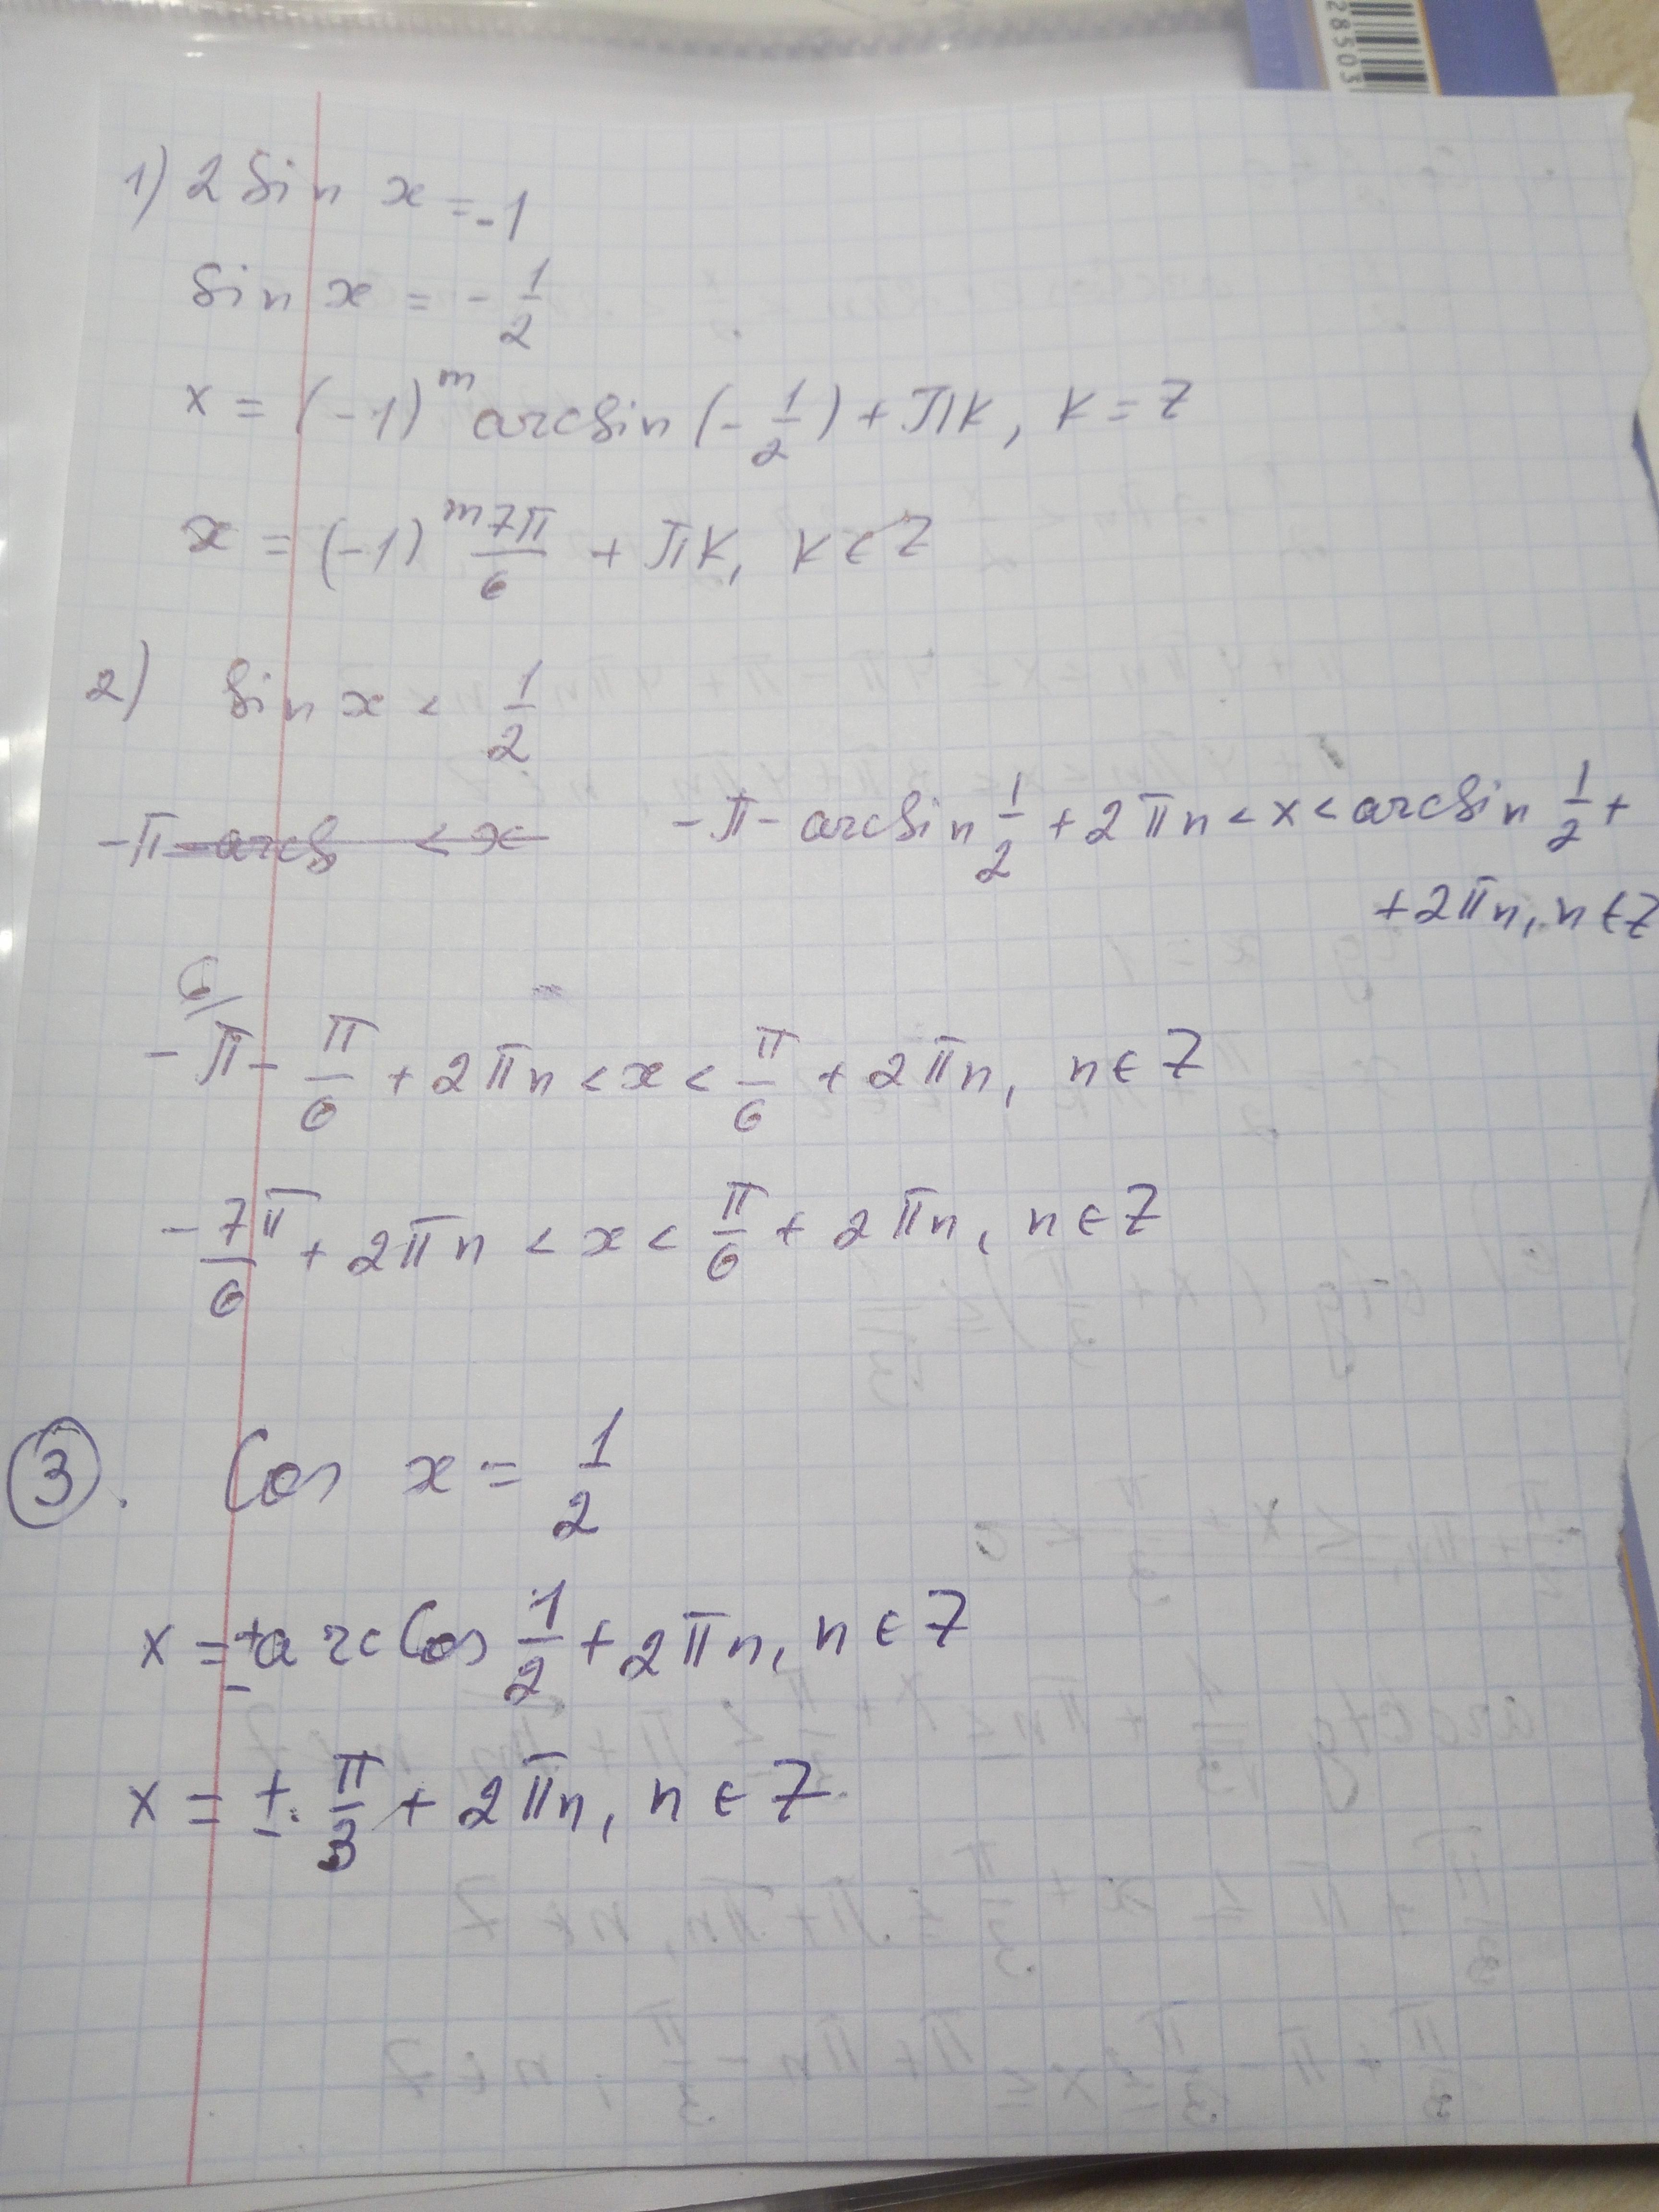 28503
1) 2 sin x = -1
sin x = - 1/2
x = (-1)^m arcsin (- 1/2) + πk, k = Z
x = (-1)^m 7π/6 + πk, k ∈ Z
2) sin x < 1/2
-π - arcs < x
-π - arcsin 1/2 + 2πn < x < arcsin 1/2 +
+ 2πn, n ∈ Z
6/
-π - π/6 + 2πn < x < π/6 + 2πn, n ∈ Z
- 7π/6 + 2πn < x < π/6 + 2πn, n ∈ Z
3. Cos x = 1/2
x = ± arccos 1/2 + 2πn, n ∈ Z
x = ± π/3 + 2πn, n ∈ Z